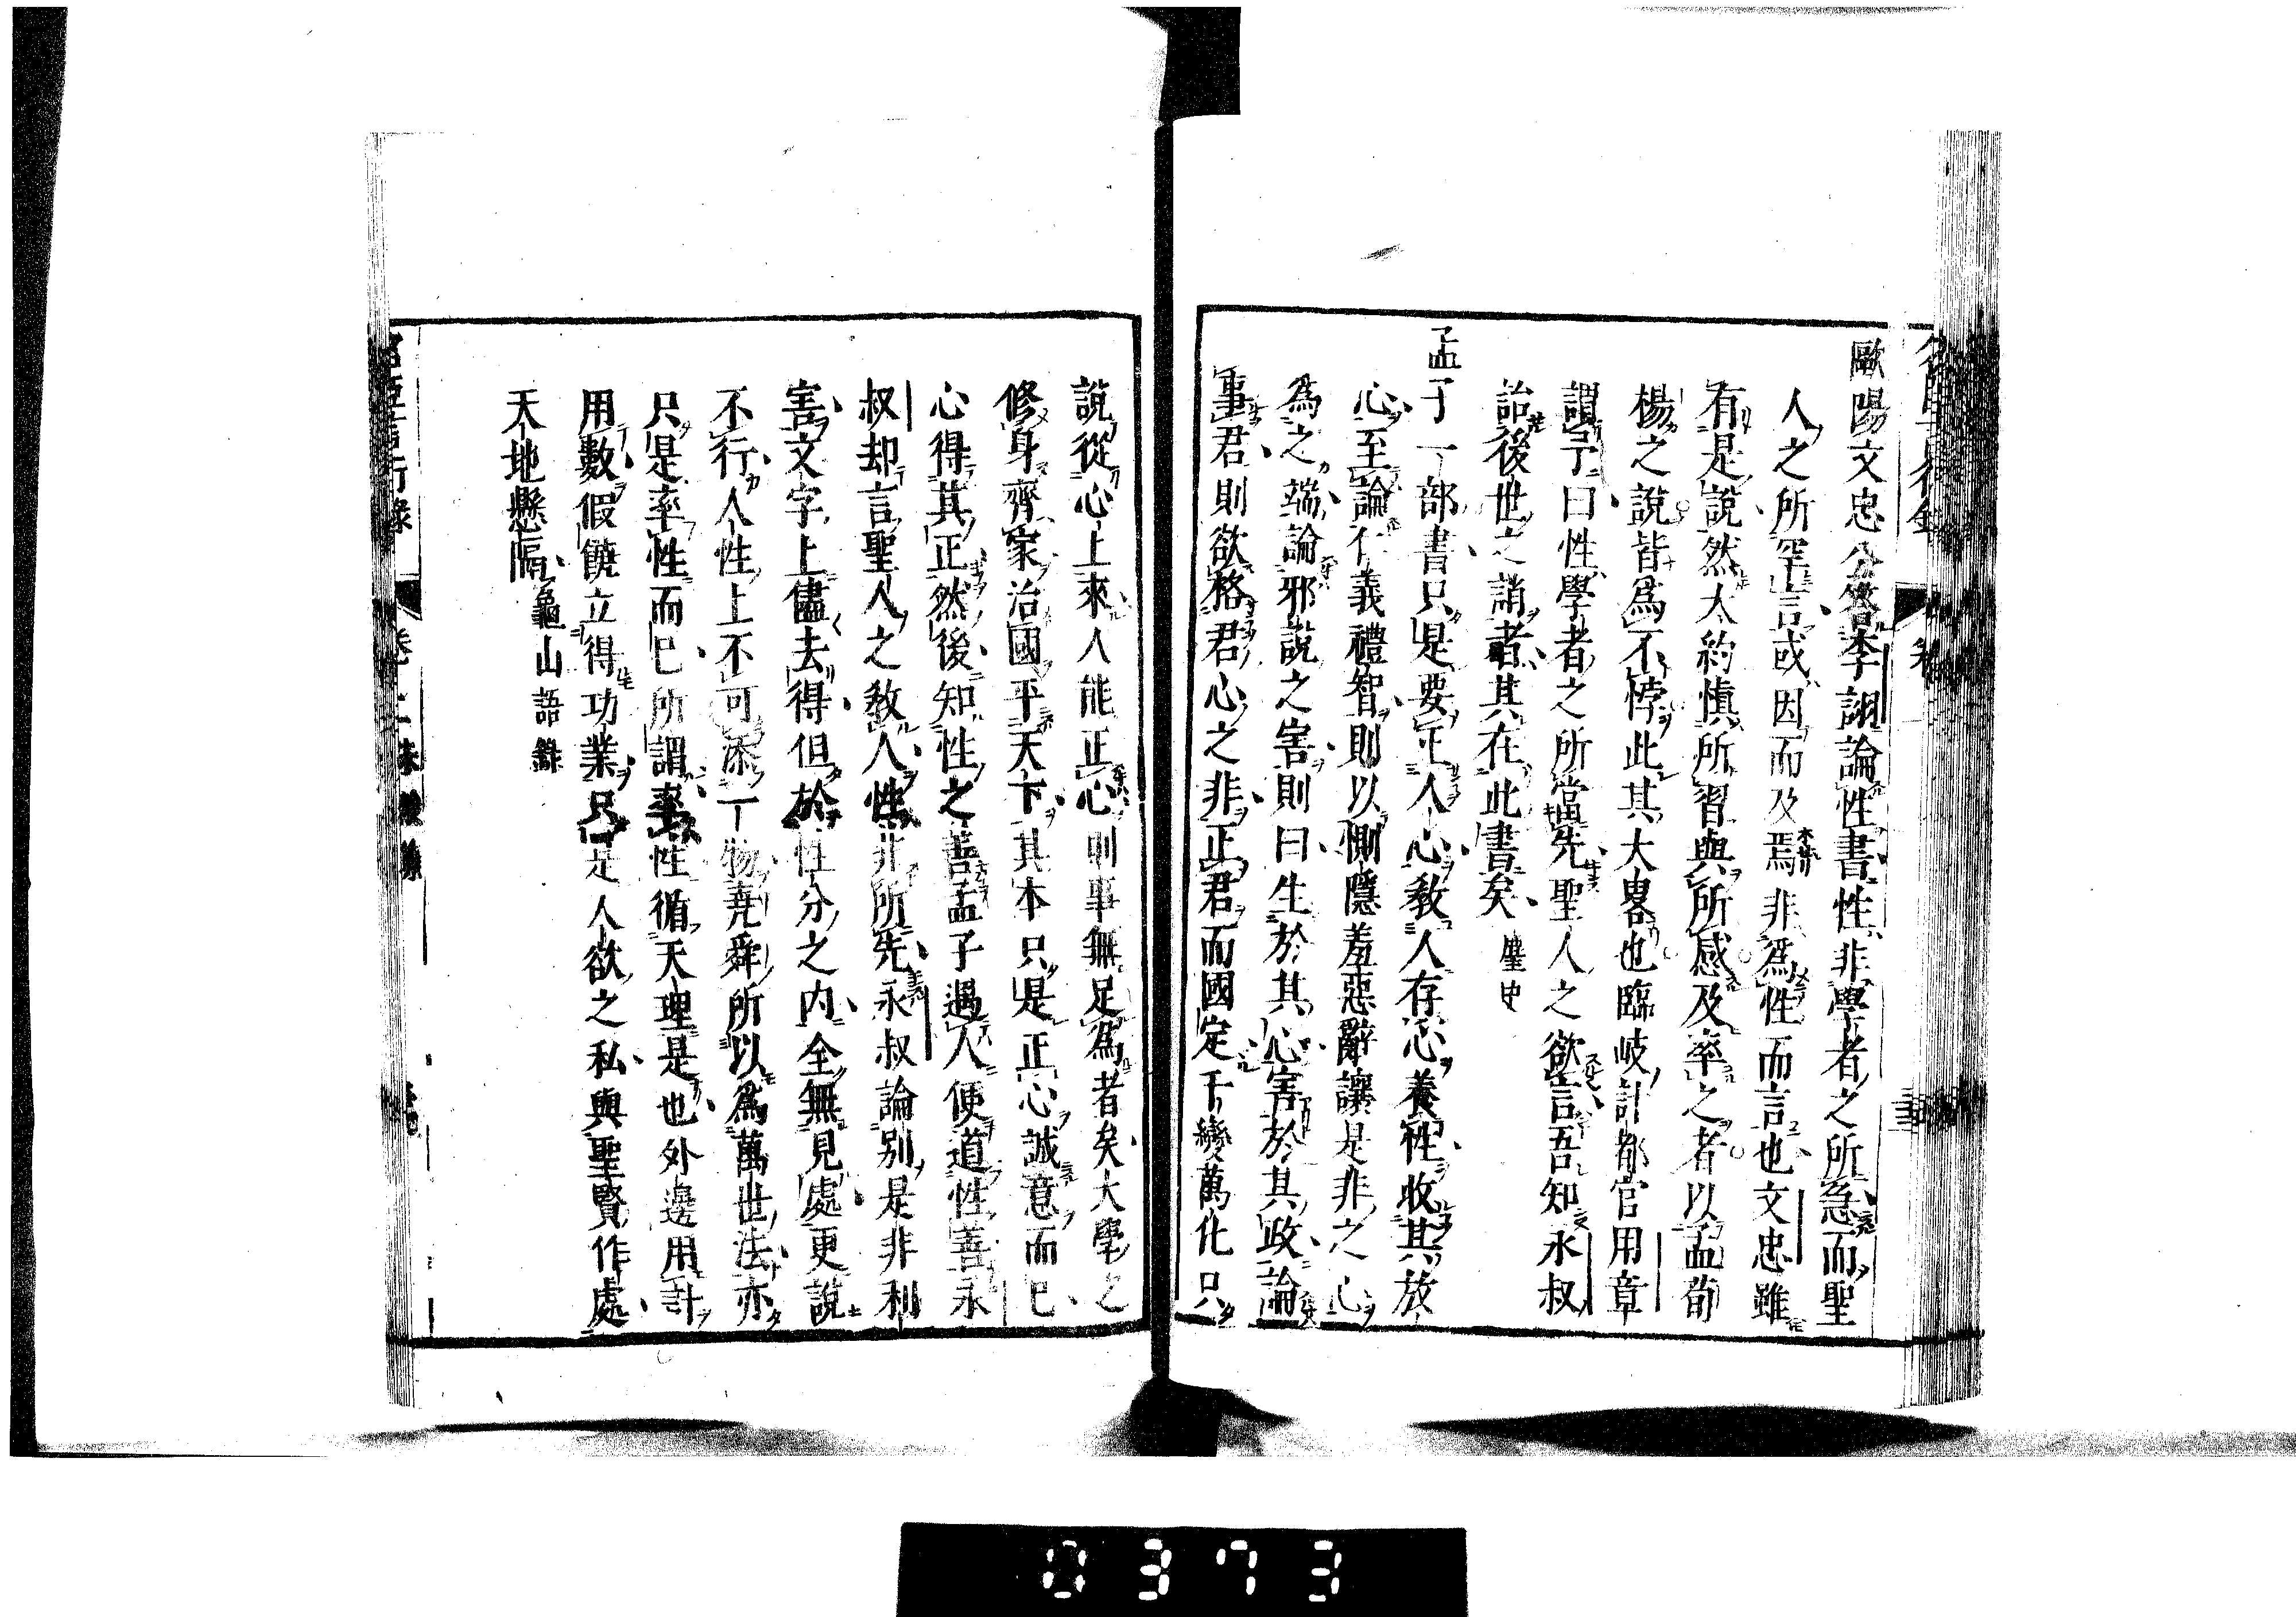 歐陽文忠公答李詡論性書性非學者之所急而聖
人之所罕言或因而及焉非爲性而言也文忠雖
有是說然大約慎所習與所感及率之者以孟荀
楊之說皆爲不悖此其大畧也臨岐計都官用章
謂予曰性學者之所當先聖人之欲言吾知永叔
詒後世之誚者其在此書矣 塵史
孟子一部書只是要正人心教人存心養性收其放
心至論仁義禮智則以惻隱羞惡辭讓是非之心
為之端論邪說之害則曰生於其心害於其政論
事君則欲格君心之非正君而國定千變萬化只
說從心上來人能正心則事無足爲者矣大學之
修身齊家治國平天下其本只是正心誠意而已
心得其正然後知性之善孟子遇人便道性善永
叔却言聖人之教人性非所先永叔論別是非利
害文字上儘去得但於性分之內全無見處更說
不行人性上不可添一物堯舜所以爲萬世法亦
只是率性而已所謂率性循天理是也外邊用計
用數假饒立得功業只是人欲之私與聖賢作處
天地懸隔 龜山語錄
0373